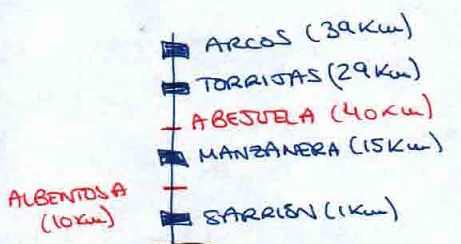 ARCOS (39Km)
TORRIJAS (29Km)
ABEJUELA (40Km)
MANZANERA (15Km)
ALBENTOSA
(10Km)
SARRIÓN (1Km)